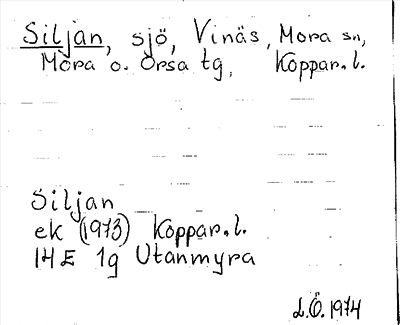 Siljan, sjö, Vinäs, Mora sn,
Mora o. Orsa tg, Koppar.l.
Siljan
ek (1973) Koppar.l.
14E 1g Utanmyra
L.Ö. 1974